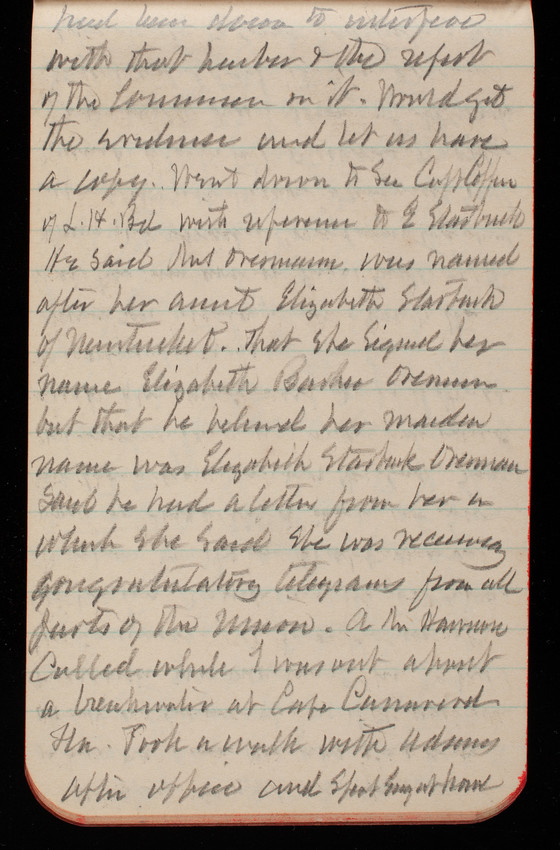 had been down to interfere
with that harbor & the report
of the Commission on it. Would get
the evidence and let us have
a copy. Went down to see Capt Coffin
of L.H.Bd with reference to E Starbuck
He said Mrs was named
after her aunt Elizabeth Starbuck
of Nantucket. That she signed her
name Elizabeth
but that he believed her maiden
name was Elizabeth Starbuck
Said he had a letter from her in
which she said she was receiving
congratulatory telegrams from all
parts of the Union. A Mr
Called while I was out about
a breakwater at Cape Canaveral
Fla. Took a walk with Adams
after office and spent Eng at home